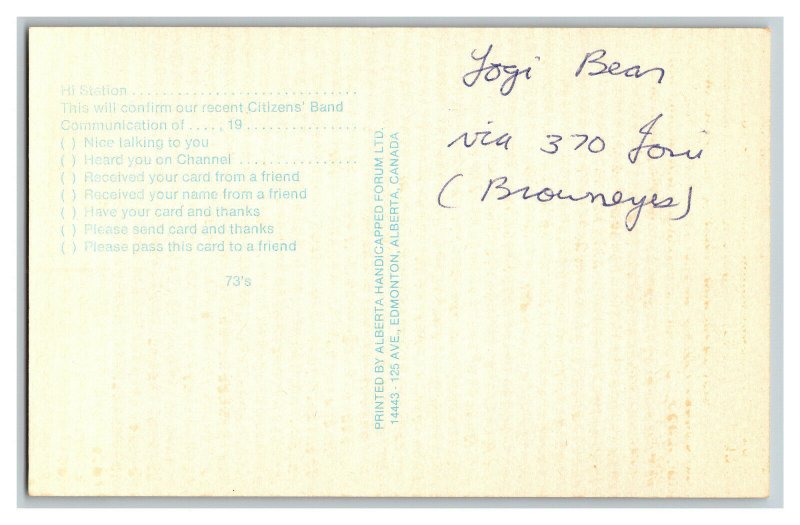 Hi Station ..............................
This will confirm our recent Citizens' Band
Communication of ...., 19 ................
( ) Nice talking to you
( ) Heard you on Channel ................
( ) Received your card from a friend
( ) Received your name from a friend
( ) Have your card and thanks
( ) Please send card and thanks
( ) Please pass this card to a friend
73's
PRINTED BY ALBERTA HANDICAPPED FORUM LTD.
14443 - 125 AVE., EDMONTON, ALBERTA, CANADA
Yogi Bear
via 370 Joni
(Browneyes)